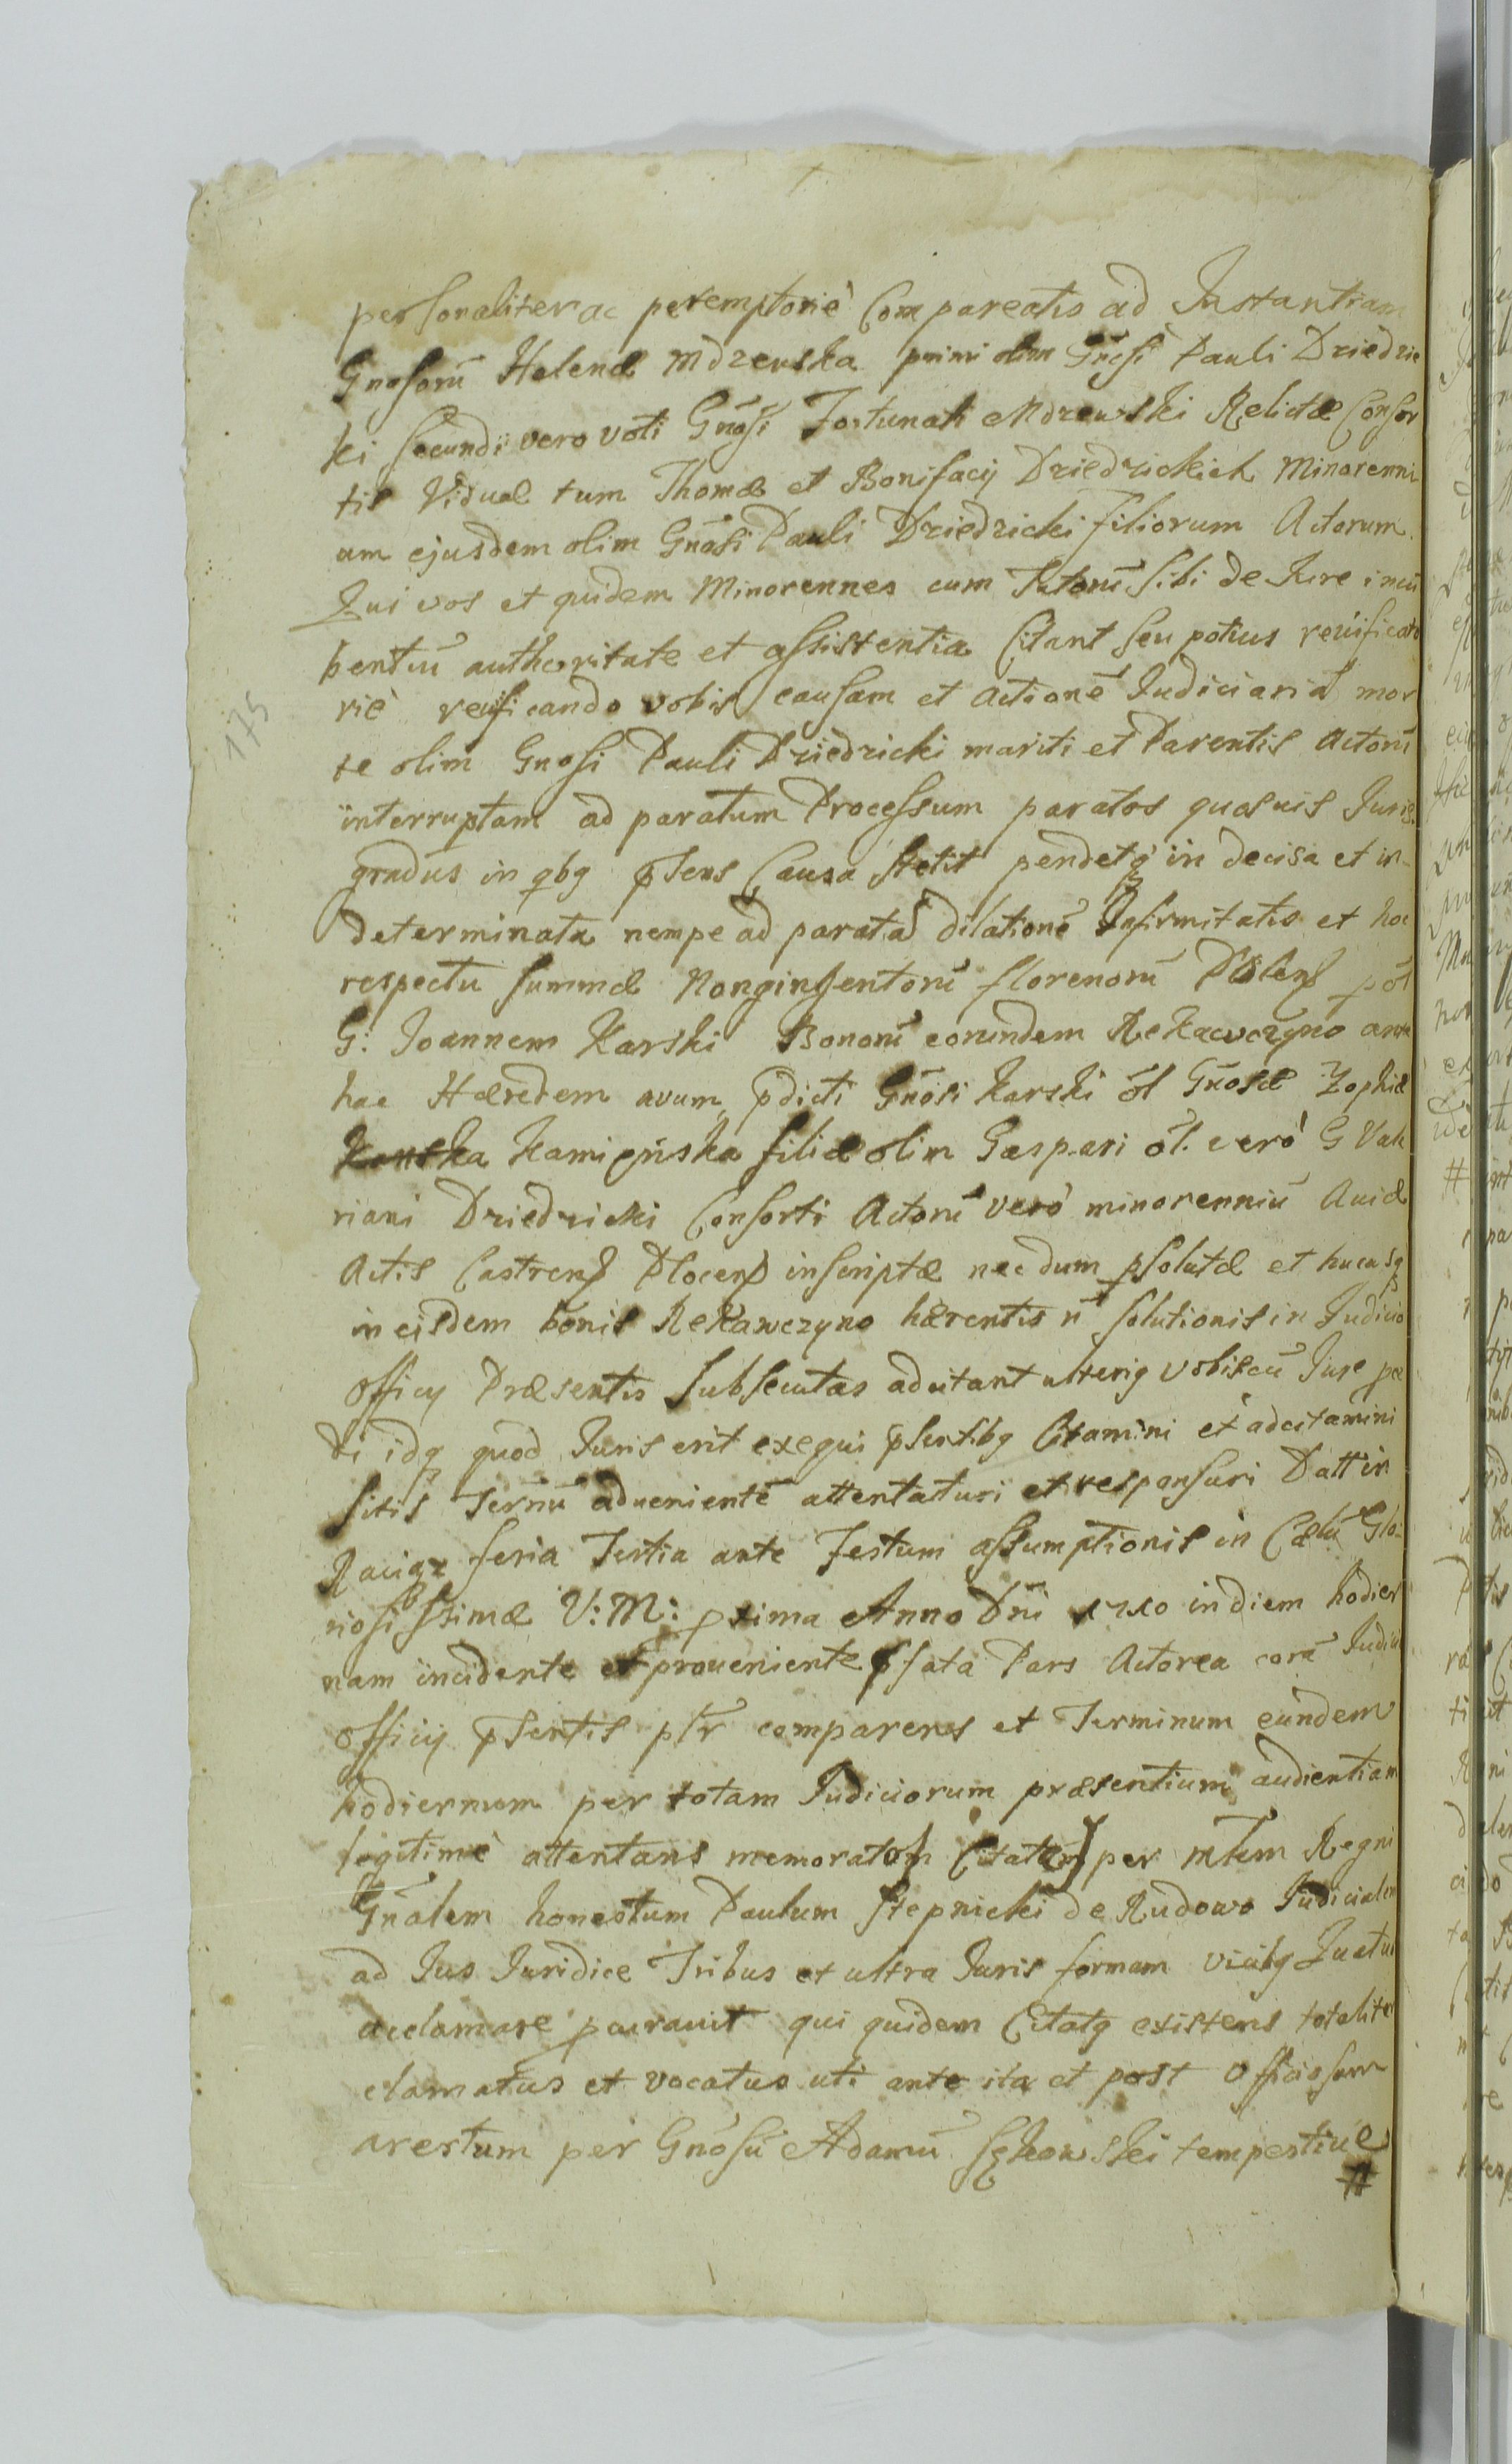 personaliter ac peremptoriè Compareatis ad Instantiam
Gnosorũ Helenæ Mdzewska primi olim Gnosi Pauli Dziedzic
ki secundi vero voti Gnõsi Fortunati Mdzewski Relictæ Consor
tis Viduæ tum Thomæ et Bonifacij Dziedzickich Minorenni
um ejusdem olim Gnõsi Pauli Dziedzicki filiorum Actorum
Qui vos et quidem Minorennes cum Tutorũ sibi de Jure incũ
bentiũ authoritate et assistentia Citant seu potius reuificato
riè reuificando vobis causam et actionẽ Judiciariã mor
te olim Gnosi Pauli Dziedzicki mariti et Parentis Actorũ
interruptam ad paratum Processum paratos quosuis Juris
gradus in qbg pśens Causa stetit pendetq́ in decisa et in
determinata nempe ad paratã dilationẽ Infirmitatis et hoc
respectu summæ Nongingentorũ florenorũ Polens
G: Joannem Karski Bonorũ eorundem Rekawczyno
hæredem avum pdicti Gnõsi Karski ol Gnosæ Zophiæ
Kamięńska filiæ olim Gaspari ol. verò G Vale
riani Dziedzicki Consorti Actorũ verò minorenniũ Auiæ
Actis Castrens Plocens inscriptæ necdum psolutæ et hucusq
in eisdem bonis Rekawczyno hærentis ñ solutionis in Judicio
officy Præsentis Subsecutas adcitant ulterig vobiscũ Jure
idq quod Juris erit exequi pśentibg Citamini et adcitamini
sitis Termũ aduenientẽ attentaturi et responsuri Datt in
Raciąz feria Tertia ante Festum assumptionis in Cælũ Glo
riosissimæ V: M: pxima Anno Dni 1710 in diem hodier
nam incidente et proueniente pfata Pars Actorea corã Judicio
officij pśentis plr comparens et Terminum eundem
hodiernum per totam Judiciorum præsentium audientiam
legitimè attentans memoratos Citatos per mlem Regni
Gñalem honestum Paulum Stepnicki de Rudowo Judicialem
ad Jus Juridice Tribus et ultra Juris formam vicibg
acclamare pacrauit qui quidem Citatg existens totaliter
clamatus et vocatus uti ante ita et post officiosum
arestum per Gnõsũ Adamũ Sękowski tempestiue
#
175